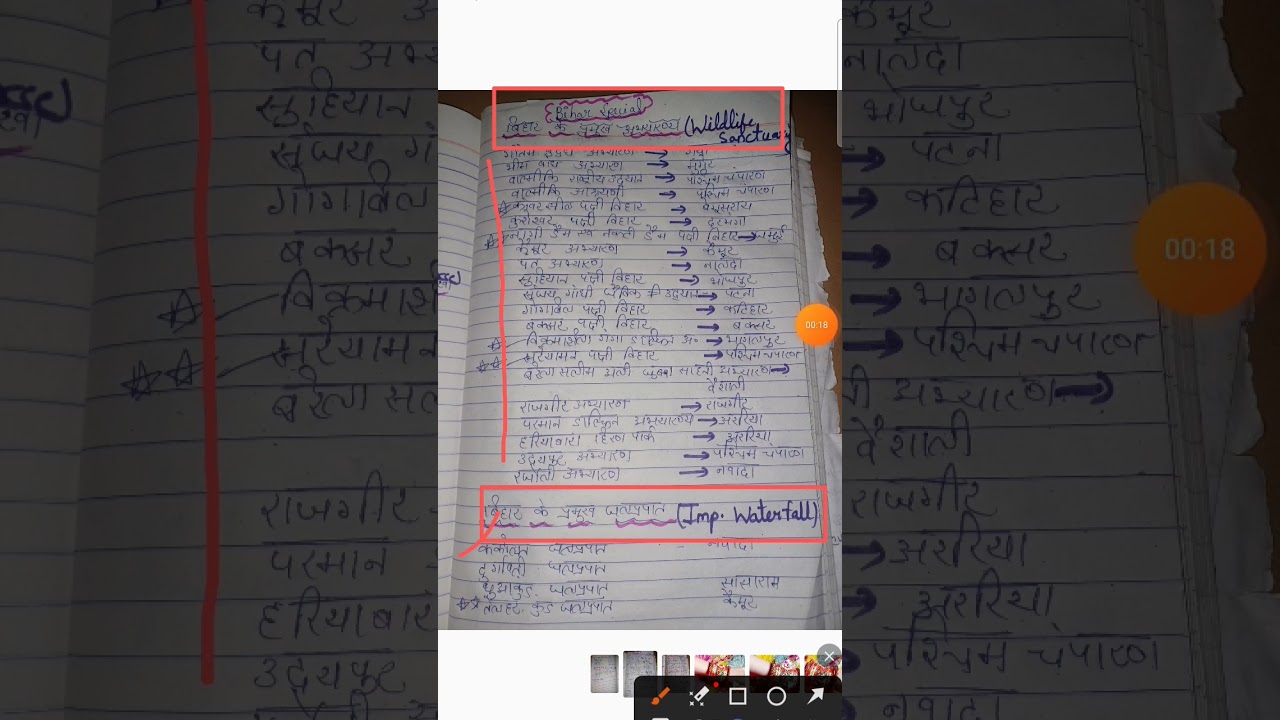 Bihar Special
बिहार के प्रमुख अभ्यारण्य (Wildlife Sanctuary)
गौतम बुद्ध अभ्यारण → गया
भीम बांध अभ्यारण → मुंगेर
वाल्मीकि राष्ट्रीय उद्यान → पश्चिम चंपारण
वाल्मीकि अभ्यारण → पश्चिम चंपारण
कावर झील पक्षी विहार → बेगूसराय
कुशेश्वर पक्षी विहार → दरभंगा
नागी डैम एवं नकटी डैम पक्षी विहार → जमुई
कैमूर अभ्यारण → कैमूर
पंत अभ्यारण → नालंदा
सुहियान पक्षी विहार → भोजपुर
संजय गांधी जैविक उद्यान → पटना
गोगाबिल पक्षी विहार → कटिहार
बक्सर पक्षी विहार → बक्सर
विक्रमशिला गंगा डाल्फिन अ० → भागलपुर
सुरैयामन पक्षी विहार → पश्चिम चंपारण
बरेला सलीम अली अभ्यारण →
वैशाली
राजगीर अभ्यारण → राजगीर
परमान डाल्फिन अभ्यारण्य → अररिया
हरियाबारा हिरण पार्क → अररिया
उदयपुर अभ्यारण → पश्चिम चंपारण
रजौली अभ्यारण → नवादा
बिहार के प्रमुख जलप्रपात (Imp. Waterfall)
ककोलत जलप्रपात - नवादा
दुर्गावती जलप्रपात
धुआंकुंड जलप्रपात सासाराम
तेलहर कुंड जलप्रपात कैमूर
00:18
00:18